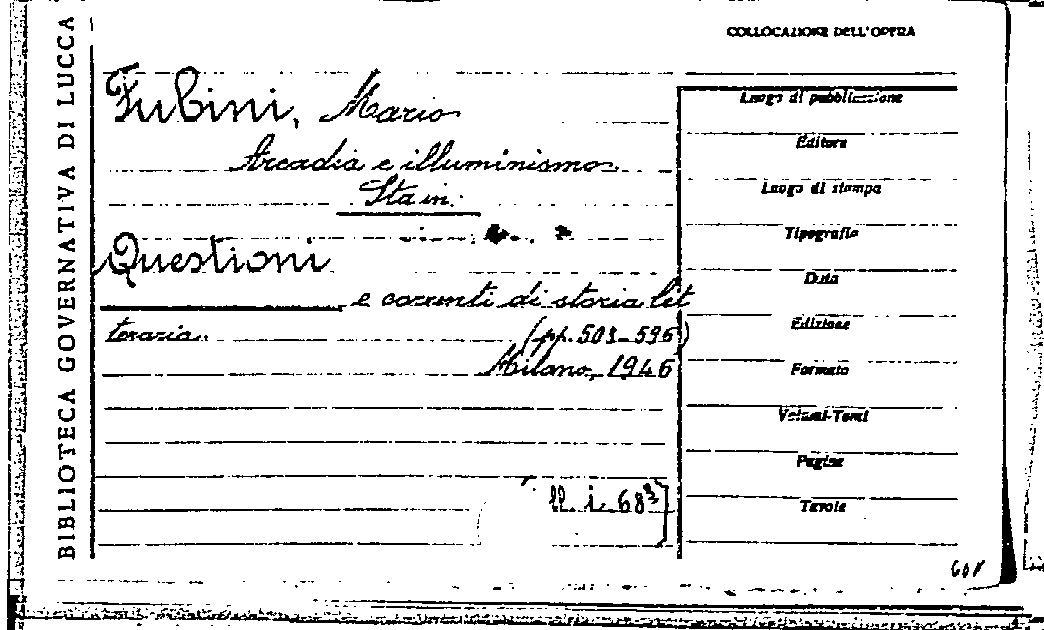 BIBLIOTECA GOVERNATIVA DI LUCCA
COLLOCAZIONE DELL'OPERA
Fubini, Mario
Arcadia e illuminismo
Sta in:
Questioni
e correnti di storia let
teraria.
(pp. 503-596)
Milano, 1946
ll. i. 68³
Luogo di pubblicazione
Editore
Luogo di stampa
Tipografia
Data
Edizione
Formato
Volumi-Tomi
Pagine
Tavole